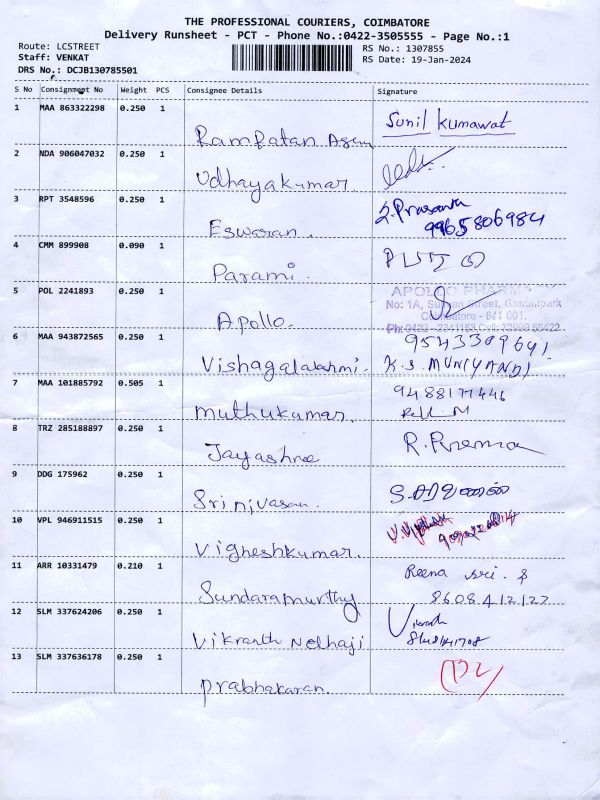 THE PROFESSIONAL COURIERS, COIMBATORE
Delivery Runsheet - PCT - Phone No.:0422-3505555 - Page No.:1
Route: LCSTREET
Staff: VENKAT
DRS No.: DCJB130785501
RS No.: 1307855
RS Date: 19-Jan-2024
S No Consignment No Weight PCS Consignee Details Signature
1 MAA 863322298 0.250 1 Sunil Kumawat
2 NDA 906047032 0.250 1 Udhayakumar
3 RPT 3548596 0.250 1 Eswaran. S.Prasanna 9965806984
4 CMM 899908 0.090 1 Parami.
5 POL 2241893 0.250 1 Apollo.
APOLLO PHARMACY
No: 1A, Street, Ganthipark
Coimbatore - 641 001.
6 MAA 943872565 0.250 1 Vishagalakshmi. 9543309641.
K.S. MUNIYANDI
7 MAA 101885792 0.505 1 Muthukumar. 9488177446
8 TRZ 285188897 0.250 1 Jayashree R. Prema
9 DDG 175962 0.250 1 Srinivasan.
10 VPL 946911515 0.250 1 Vigneshkumar.
11 ARR 10331479 0.210 1 Sundaramurthy Reena sri. S
8608412127
12 SLM 337624206 0.250 1 Vikranth Nelhaji
13 SLM 337636178 0.250 1 Prabhakaran.